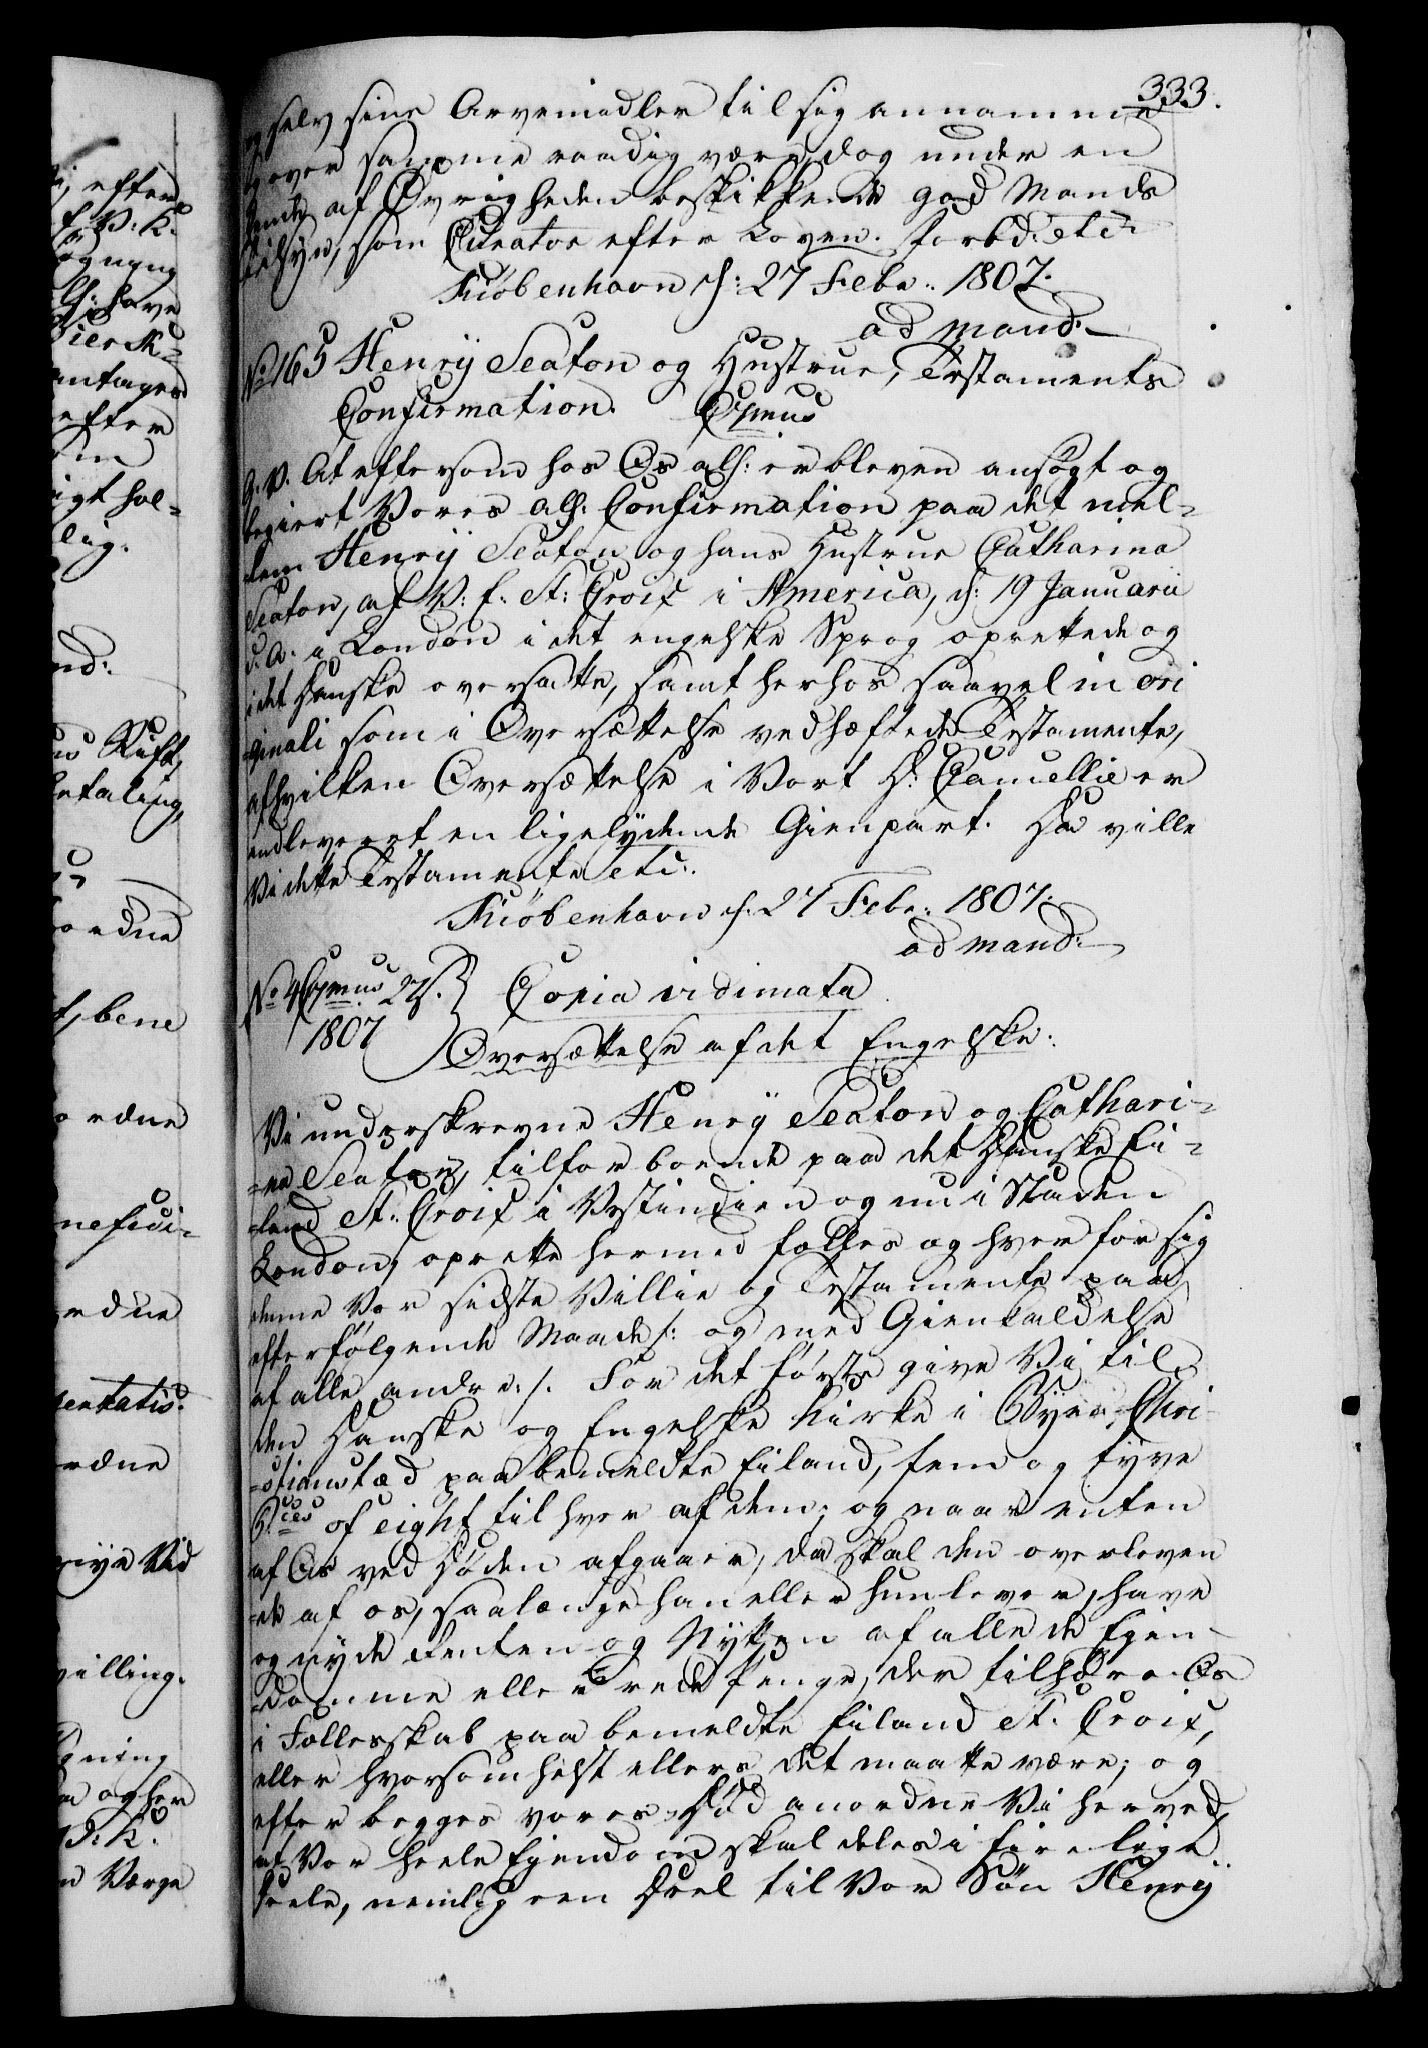 333.
og selv sine Arvemidler til sig annamme
og over samme raadig være, dog under en
dende af Øvrigheden beskikkende god Mands
Tilsyn, som Curator efter Loven. Forbd: etc:
Kiøbenhavn d: 27 Febr. 1807.
ad mand:
No 165 Henrÿ Seaton og Hustrue, Testaments
Confirmation. Cÿmus
G. V. At eftersom hos Os alh: er bleven ansøgt og
begiert Vores alh. Confirmation paa det mel-
lem Henrÿ Seaton og hans Hustrue Catharina
Seaton, af V: E. St: Croix i America, d: 19 Januarii
d. A. i London i det engelske Sprog oprettede og
i det Danske oversatte, samt herhos saavel in ori
ginali som i Oversættelse vedhæftede Testamente,
af hvilken Oversættelse i Vort D: Cancellie er
indleveret en ligelÿdende Gienpart. Da ville
Vi dette Testamente etc:.
Kiøbenhavn d. 27 Febr: 1807.
ad mand:
No 4 Cÿmus 2 ß. Copia vidimata
1807
Oversættelse af det Engelske:
Vi underskrevne Henrÿ Seaton og Cathari-
=na Seaton, tilfor boende paa det Danske Ei-
=land St. Croix i Vestindien og nu i Staden
London, oprette hermed fælles og hver for sig
denne Vor sidste Villie og Testamente paa
efterfølgende Maade /: og med Gienkaldelse
af alle andre :/. For det første give Vi til
den Danske og Engelske Kirke i Byen Chri-
=stianstæd paa bemeldte Eiland, fem og tyve
P:ces of eight til hver af dem; og naar enten
af Os ved Døden afgaaer, da skal den overleven
=de af os, saalænge han eller hun lever, have
og nyde Renten og Nytten af alle de Ejen-
=domme eller rede Penge, der tilhøre Os
i Fællesskab paa bemeldte Eiland St. Croix,
eller hvorsomhelst ellers det maatte være; og
efter begges vores Død anordne Vi herved,
at Vor heele Ejendom skal deles i fire lige
Deele, nemlig een Deel til Vor Søn Henrÿ